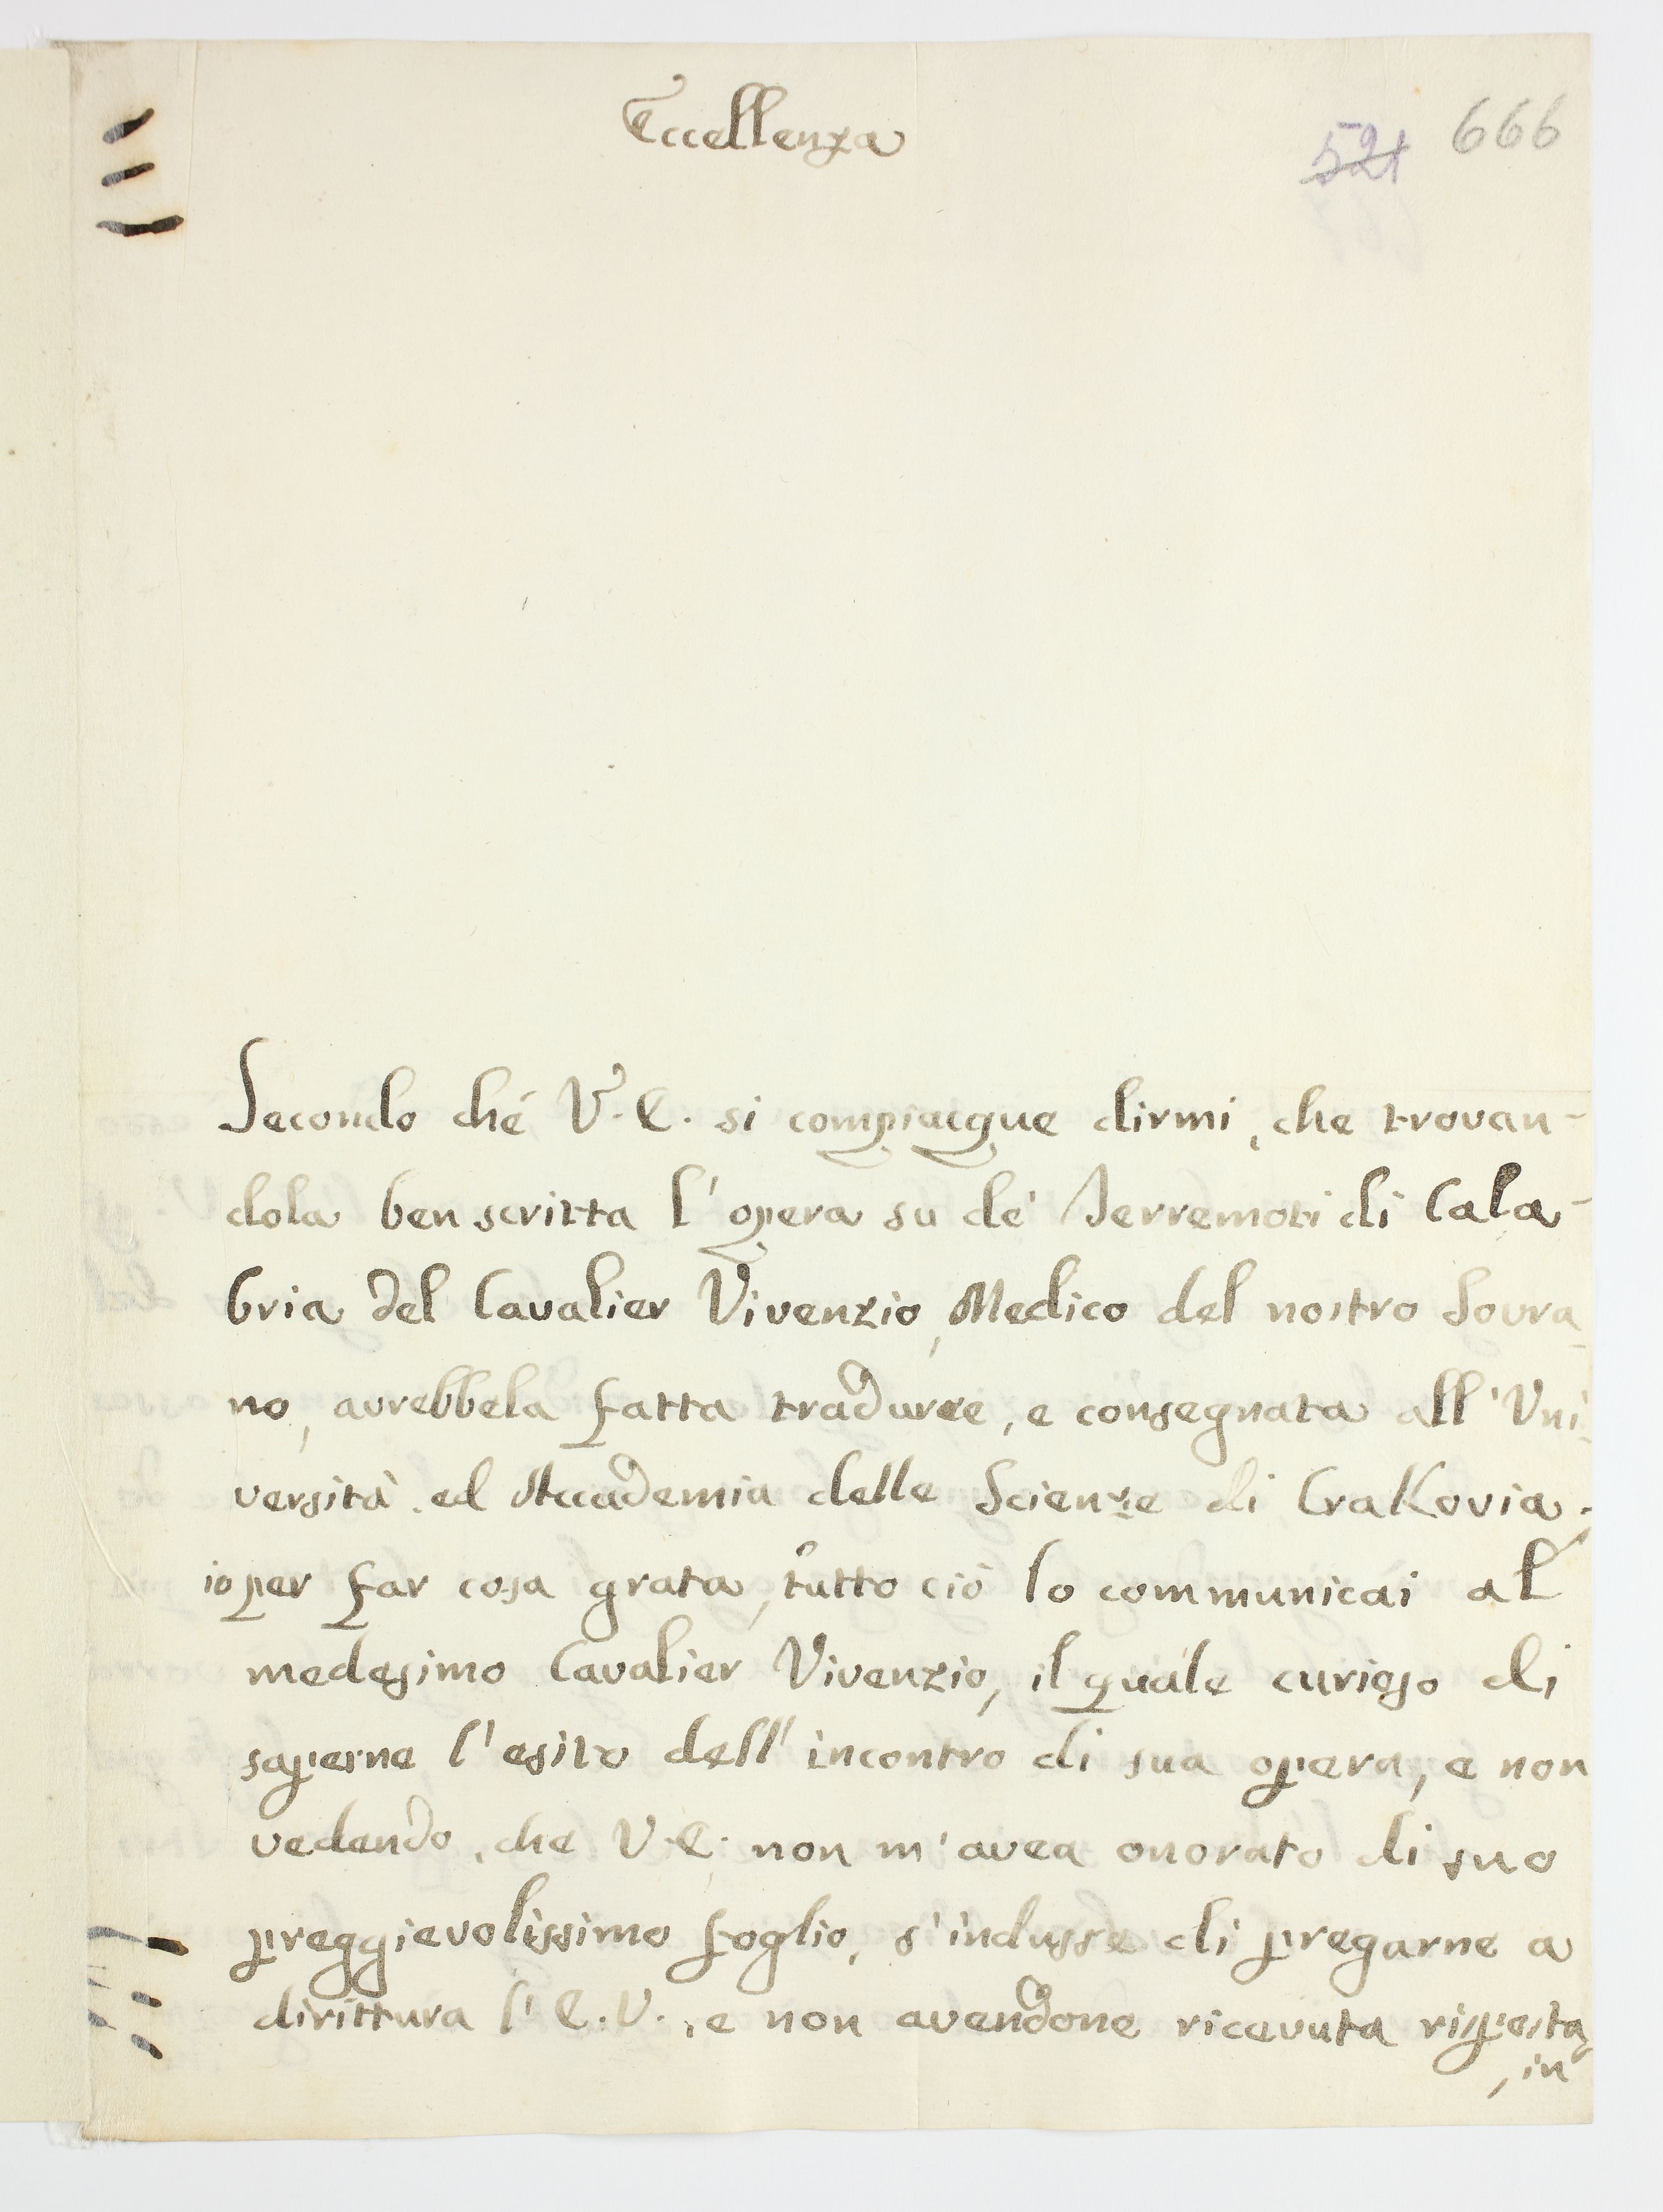 Eccellenza
521 666
Secondo ché V. E. si compiacque dirmi, che trovan-
dola ben scritta l'opera su de' Terremoti di Cala-
bria del Cavalier Vivenzio, Medico del nostro Sovra-
no, avrebbela fatta tradurre, e consegnata all'Uni-
versità, ed Accademia delle Scienze di CraKovia.
io per far cosa grata, tutto ciò lo communicai al
medesimo Cavalier Vivenzio, il quale curioso di
saperne l'esito dell'incontro di sua opera, e non
vedendo, che V. E. non m'avea onorato di suo
preggievolissimo foglio, s'indusse di pregarne a
dirittura l'E. V., e non avendone ricevuta risposta,
in